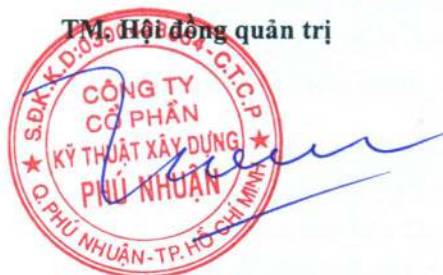 TM. Hội đồng quản trị
CÔNG TY
CỔ PHẦN
KỸ THUẬT XÂY DỰNG
PHÚ NHUẬN
Q.PHÚ NHUẬN-TP.HỒ CHÍ MINH